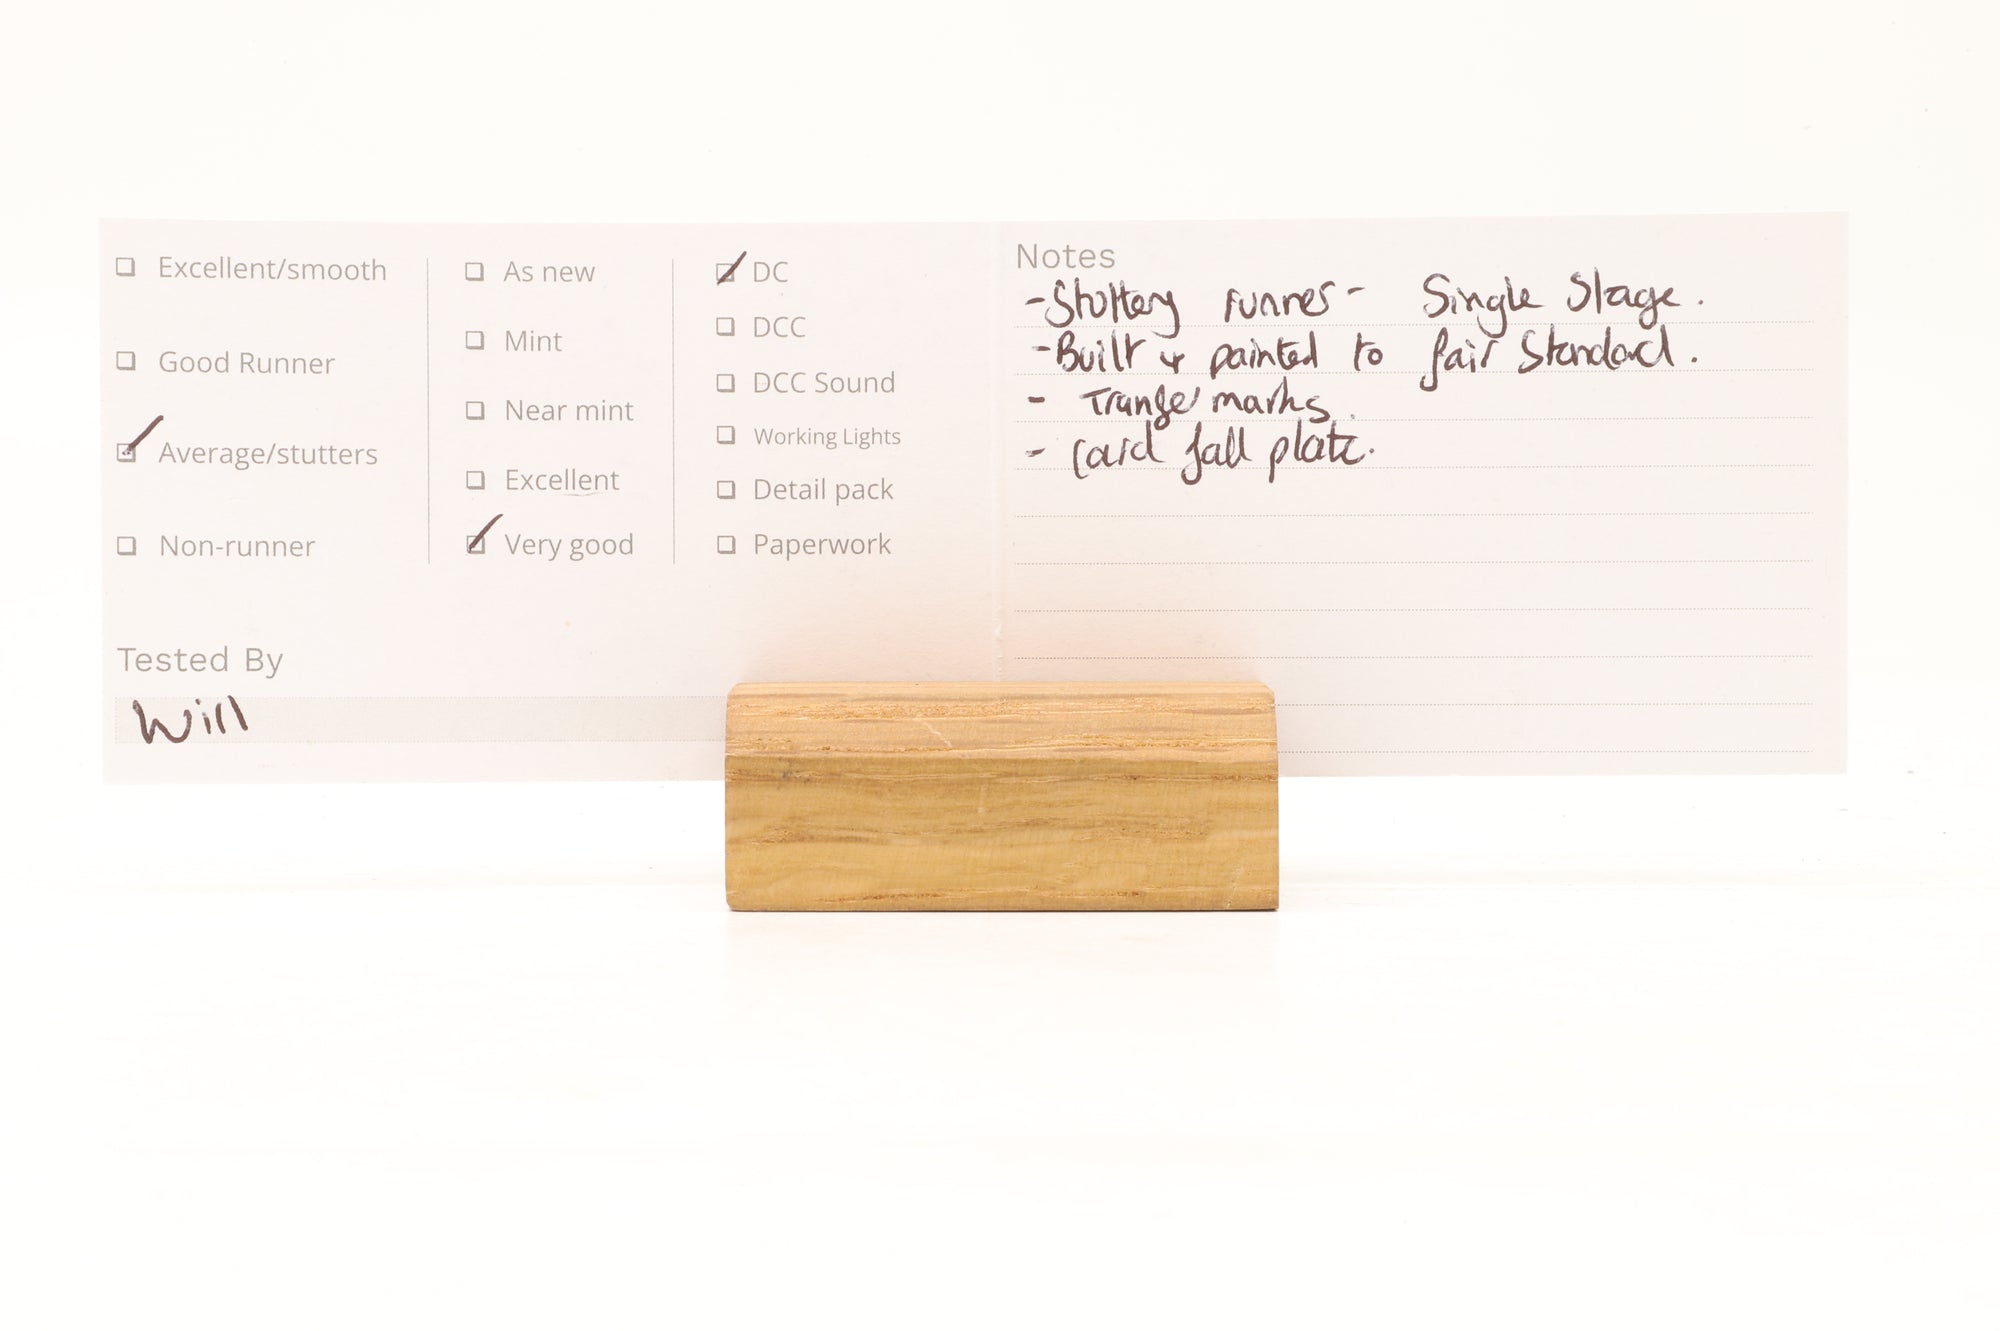 Excellent/smooth
Good Runner
Average/stutters
Non-runner
As new
Mint
Near mint
Excellent
Very good
DC
DCC
DCC Sound
Working Lights
Detail pack
Paperwork
Tested By
Will
Notes
- Stuttery runner - Single Stage.
- Built & painted to fair Standard.
- marks.
- Card fall plate.